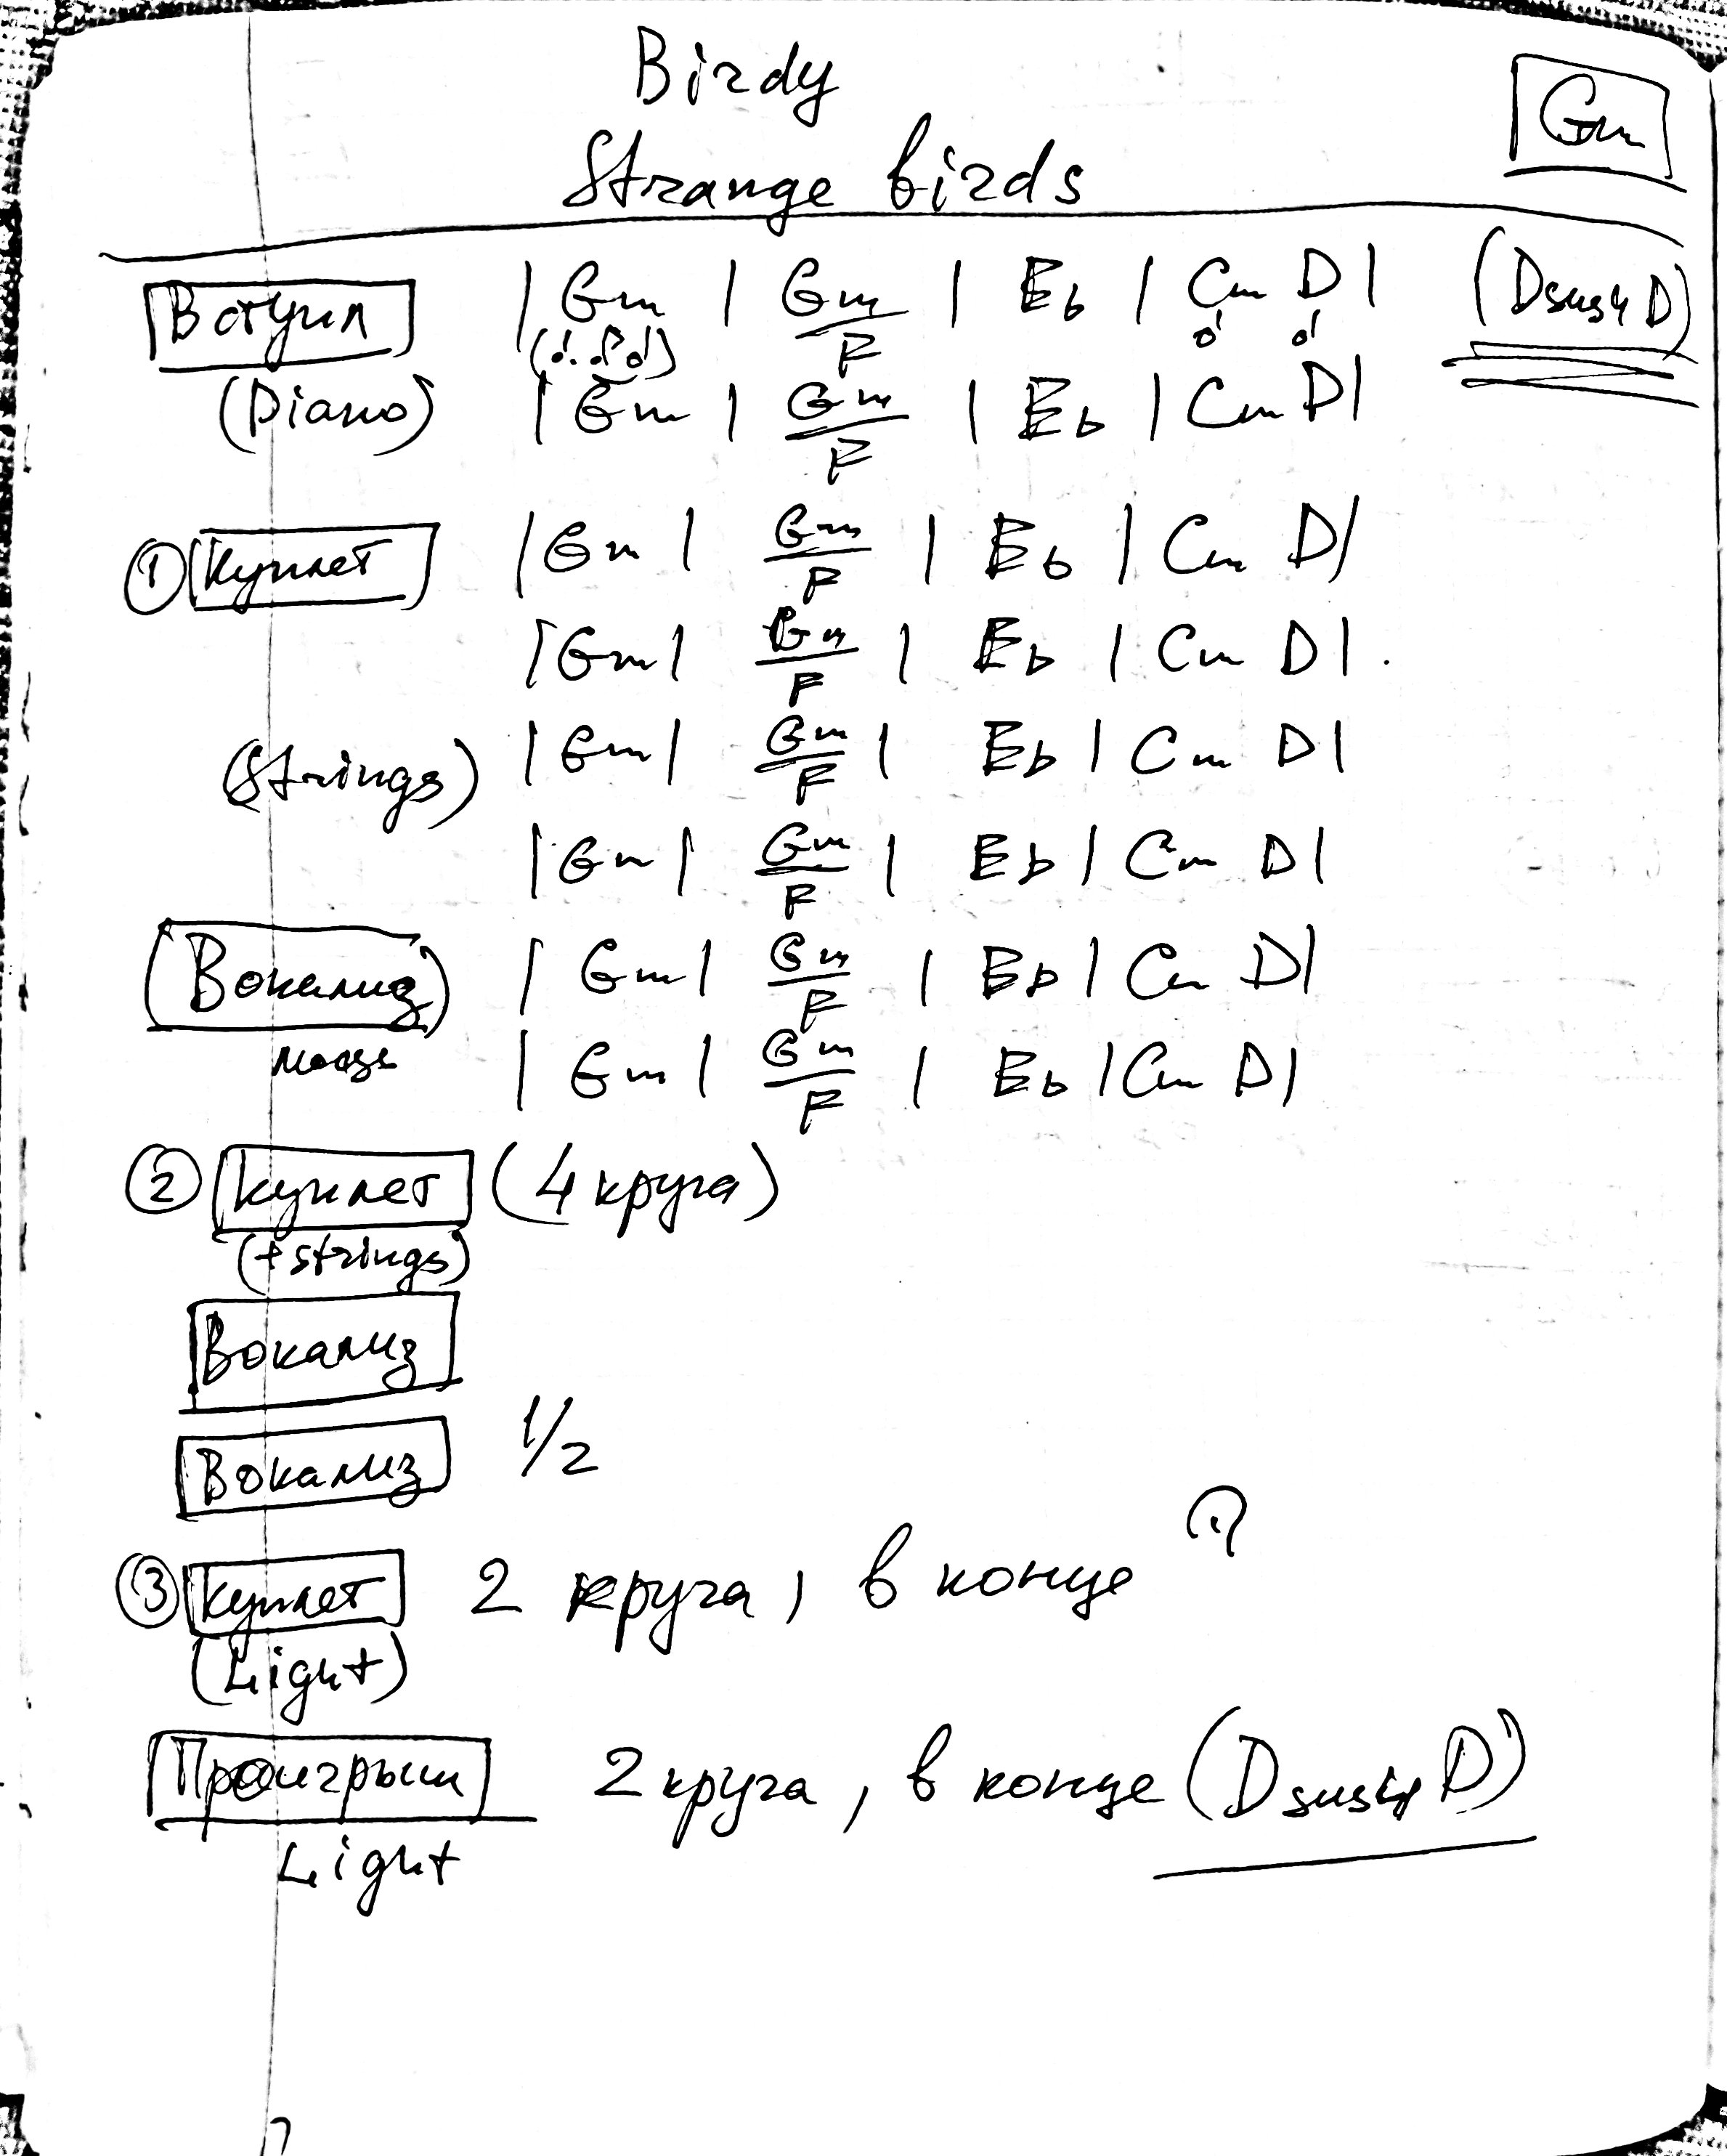 Birdy
Gm
Strange birds
Вступл | Gm | Gm/F | Eb | Cm D | (Dsus4 D)
(Piano) | Gm | Gm/F | Eb | Cm D |
① Куплет | Gm | Gm/F | Eb | Cm D |
| Gm | Gm/F | Eb | Cm D | .
(Strings) | Gm | Gm/F | Eb | Cm D |
| Gm | Gm/F | Eb | Cm D |
(Вокализ) | Gm | Gm/F | Eb | Cm D |
| Gm | Gm/F | Eb | Cm D |
② Куплет (4 круга)
(+strings)
Вокализ
Вокализ 1/2
③ Куплет 2 круга, в конце
(Light)
Проигрыш 2 круга, в конце (Dsus4 D)
Light